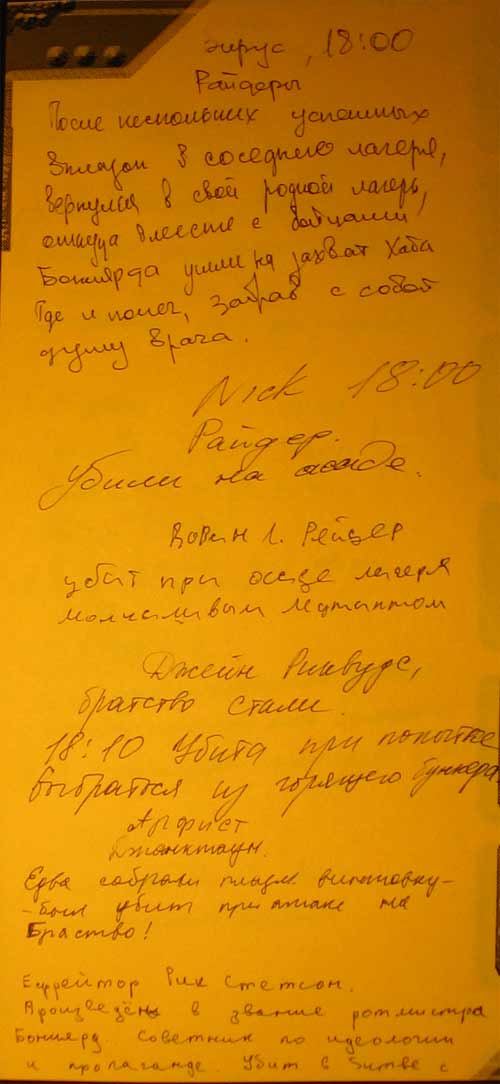 эирус, 18:00
Райдеры
После нескольких успешных
вылазок в соседние лагеря,
вернулся в свой родной лагерь,
откуда вместе с бойцами
Бонярда ушли на захват Хаба
Где и полег, забрав с собой
душу врача.
Nick 18:00
Райдер.
Убили на осаде.
Ворен Л. Рейдер
убит при осаде лагеря
молчаливым мутантом
Джейн Риквудс,
братство стали.
18:10 Убита при попытке
выбраться из горящего бункера
Арфист
Джанктаун.
Едва собрали плазм. винтовку-
-был убит при атаке на
Браство!
Ефрейтор Рик Стетсон.
Произведён в звание ротмистра
Бонярд. Советник по идеологии
и пропаганде. Убит в битве с